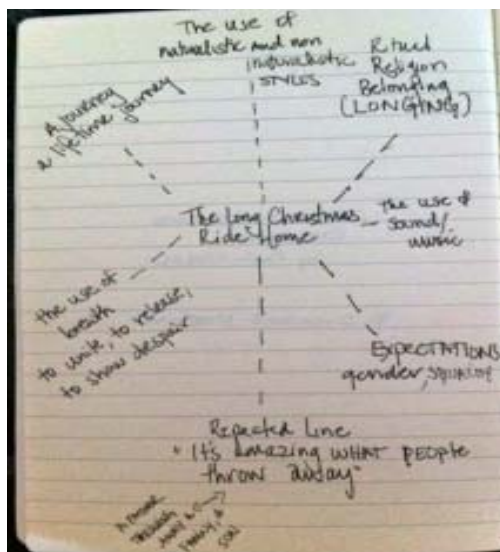 The use of
naturalistic and non
naturalistic
STYLES
Ritual
Religion
Belonging
(LONGING)
A journey
a lifetime journey
The Long Christmas
Ride Home
the use of
sound/
music
the use of
breath
to unite, to release,
to show despair
EXPECTATIONS
gender,
Repeated Line
"It's amazing WHAT PEOPLE
throw away"